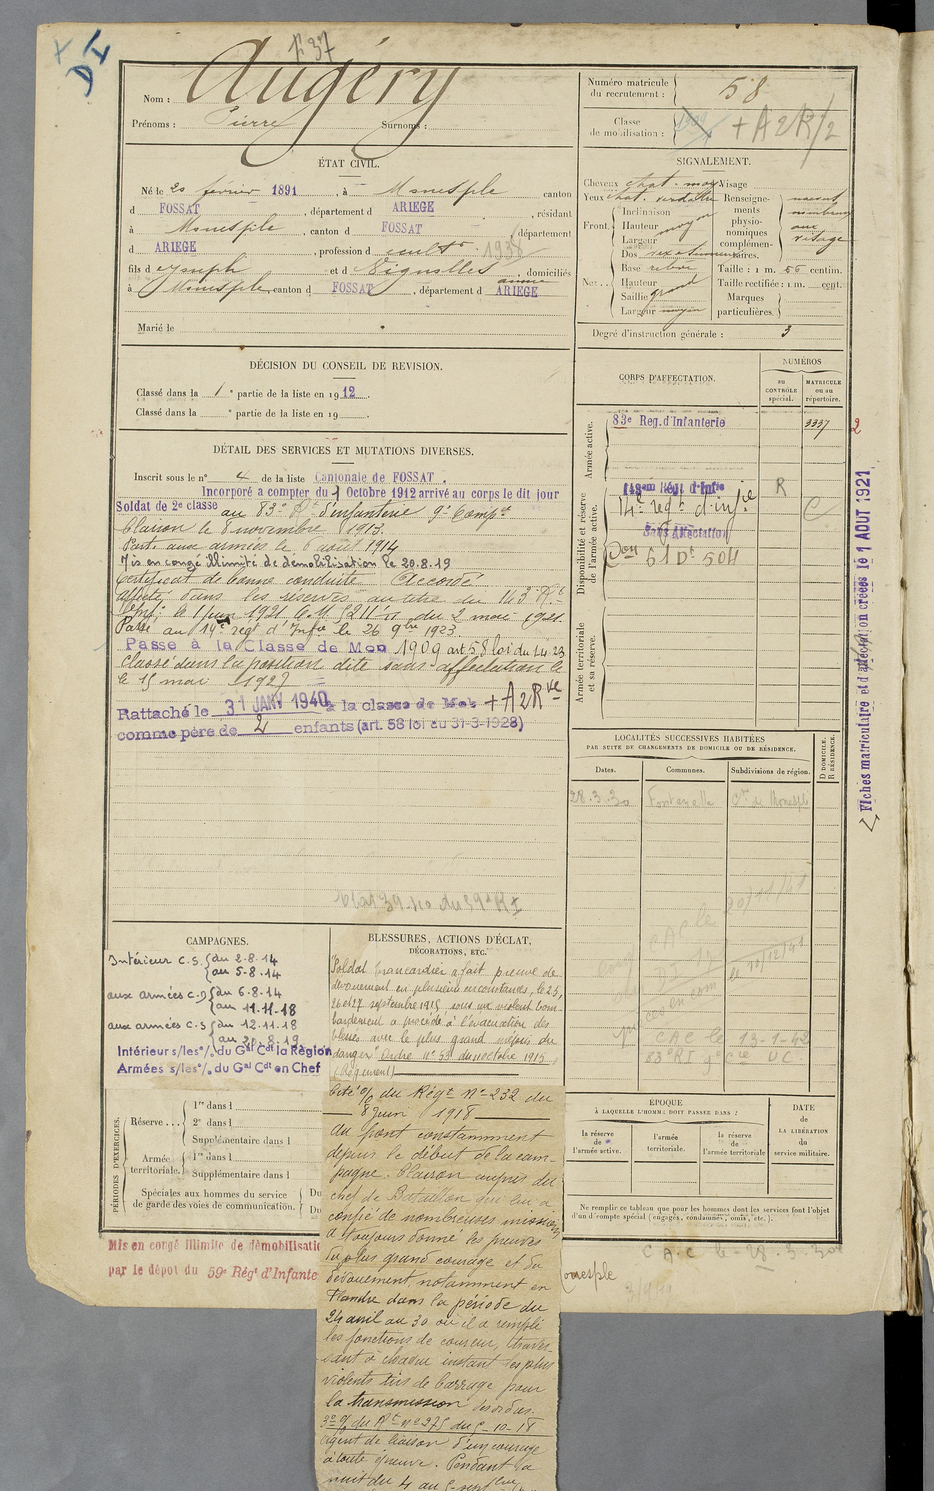 F 37
DI
Nom : Augéry
Prénoms : Pierre Surnoms :
Numéro matricule du recrutement : 58
Classe de mobilisation : 1909 + A 2 R/2
ÉTAT CIVIL.
Né le 20 février 1891, à Monesple canton
d FOSSAT, département d ARIEGE, résidant
à Monesple, canton d FOSSAT, département
d ARIEGE, profession de cultr 1938
fils d Joseph et d Vignolles Jeanne, domiciliés
à Monesple, canton d FOSSAT, département d ARIEGE
Marié le
SIGNALEMENT.
Cheveux chat. moy. Visage
Yeux chat. verdâtre Renseignements physionomiques complémentaires.
Front. Inclinaison
Hauteur moyen
Largeur
Nez. Dos rex sinueux
Base relevé
Hauteur grand
Saillie
Largeur moyen
naevus nombreux au visage
Taille : 1 m. 56 centim.
Taille rectifiée : 1 m. cent.
Marques particulières.
Degré d'instruction générale : 3
DÉCISION DU CONSEIL DE REVISION.
Classé dans la 1e partie de la liste en 1912.
Classé dans la e partie de la liste en 19
DÉTAIL DES SERVICES ET MUTATIONS DIVERSES.
Inscrit sous le n° 4 de la liste Cantonale de FOSSAT.
Incorporé a compter du 1 Octobre 1912 arrivé au corps le dit jour
Soldat de 2e classe au 83e Rt d'infanterie 9e Compie
Clairon le 8 novembre 1913.
Parti aux armées le 6 août 1914
Mis en congé illimité de démobilisation le 20.8.19
Certificat de bonne conduite Accordé
affecté dans les réserves au titre du 143e Rt
Inf; le 1 juin 1921 le M 5211/11 du 2 mai 1921.
Passé au 14e regt d'Infie le 26 9bre 1923.
Passe à la Classe de Mon 1909 art 58 loi du 1.4.23
Classé dans la position dite sans affectation le
le 15 mai 1927
Rattaché le 31 JANV 1940 à la classe de Mob + A 2 R
comme père de 2 enfants (art. 58 loi du 31-3-1928)
CORPS D'AFFECTATION.
NUMÉROS
au CONTRÔLE spécial.
MATRICULE ou au répertoire.
Armée active.
83e Reg. d'Infanterie 3337
Disponibilité et réserve de l'armée active.
143em Régt d'Infie R
14e regt d'infie C
Sans Affectation
Don 51 Dt 504
Armée territoriale et sa réserve.
2
Fiches matriculaire et d'affectation créées le 1 AOUT 1921
LOCALITÉS SUCCESSIVES HABITÉES
PAR SUITE DE CHANGEMENTS DE DOMICILE OU DE RÉSIDENCE.
Dates. Communes. Subdivisions de région. D DOMICILE. R RÉSIDENCE.
28.3.30 Fontenelle Cne de Monesple
CAC le 20/11/41
le 10/12/41
CAC le 13-1-42
83e RI 9e Cie UC
CAMPAGNES.
Intérieur C.S. du 2.8.14
au 5.8.14
aux armées C.D du 6.8.14
au 11.11.18
aux armées C.S du 12.11.18
au 20.8.19
Intérieur s/les °/. du Gal Cdt la Région
Armées s/les °/. du Gal Cdt en Chef
BLESSURES, ACTIONS D'ÉCLAT,
DÉCORATIONS, ETC.
Soldat brancardier a fait preuve de
dévouement en plusieurs circonstances, le 25,
26 et 27 septembre 1915 sous un violent bom-
bardement a procédé à l'évacuation des
blessés avec le plus grand mépris du
danger" Ordre n° 53 du octobre 1915
(Régiment)
Cité o/ du Régt N° 232 du
8 juin 1918
Au front constamment
depuis le début de la cam-
pagne. Clairon auprès du
chef de Bataillon qui lui a
confié de nombreuses missions
a toujours donné les preuves
du plus grand courage et du
dévouement, notamment en
Flandre dans la période du
24 avril au 30 où il a rempli
les fonctions de coureur, traver-
sant à chaque instant les plus
violents tirs de barrage pour
la transmission des ordres.
3e o/ du Rt n° 275 du 5-10-18
Agent de liaison d'un courage
à toute épreuve. Pendant la
nuit du 4 au 5 septbre
PÉRIODES D'EXERCICES.
Réserve... 1re dans l
2e dans l
Supplémentaire dans l
Armée territoriale. 1re dans l
Supplémentaire dans l
Spéciales aux hommes du service de garde des voies de communication. Du
Du
EPOQUE
À LAQUELLE L'HOMME DOIT PASSER DANS :
la réserve de l'armée active. l'armée territoriale. la réserve de l'armée territoriale
DATE de LA LIBÉRATION du service militaire.
Ne remplir ce tableau que pour les hommes dont les services font l'objet
d'un décompte spécial (engagés, condamnés, omis, etc.).
Mis en congé illimité de démobilisatio
par le dépot du 59e Régt d'Infante
C.A.C le 28.3.30
Monesple